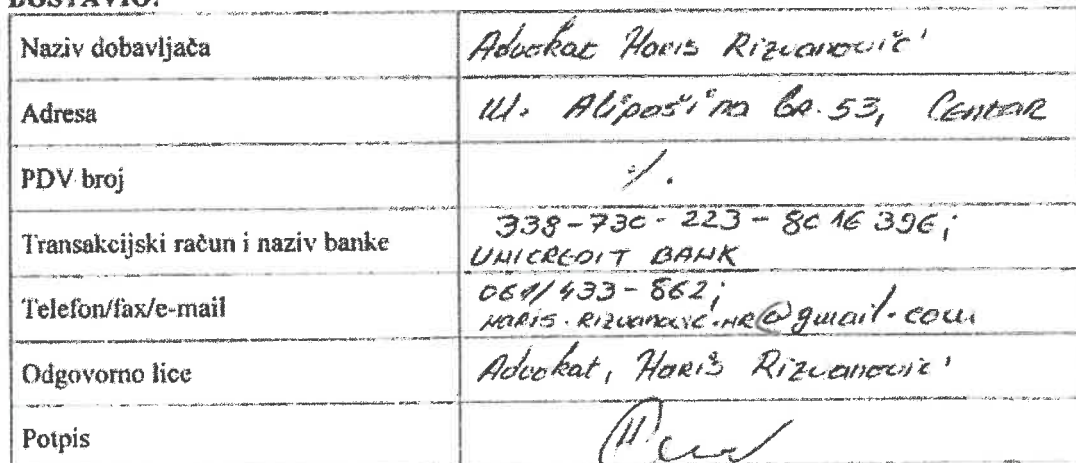 DOSTAVIO:
Naziv dobavljača Advokat Haris Rizvanović
Adresa Ul. Alipašina br. 53, Centar
PDV broj /.
Transakcijski račun i naziv banke 338-730-223-8016396;
UNICREDIT BANK
Telefon/fax/e-mail 061/433-862;
HARIS.RIZVANOVIC.HR@gmail.com
Odgovorno lice Advokat, Haris Rizvanović
Potpis